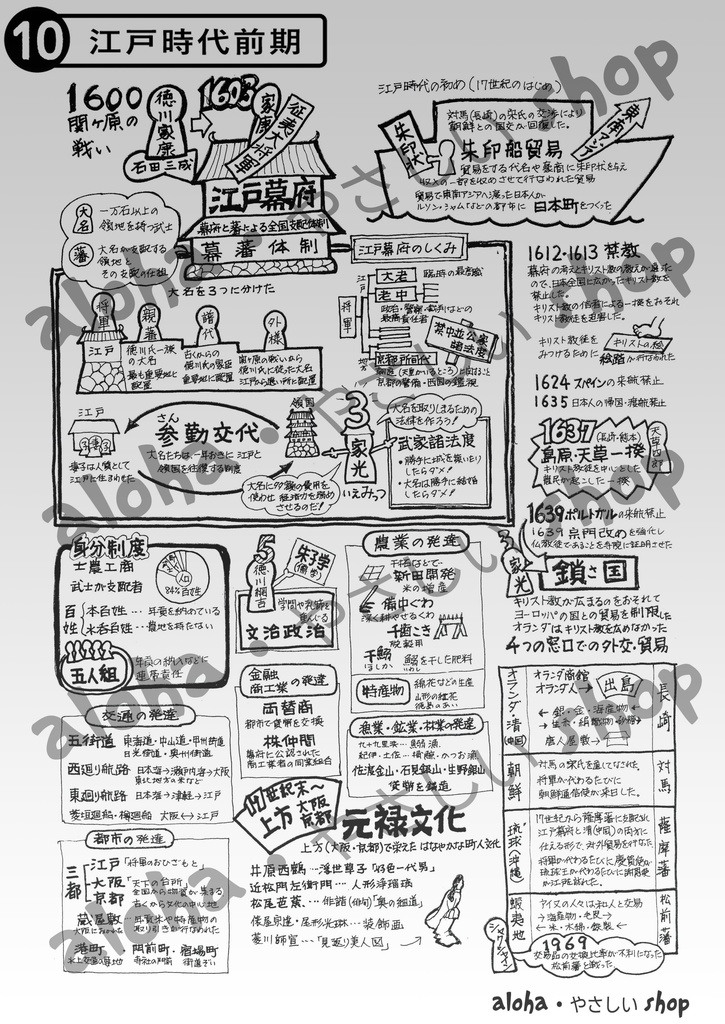 10 江戸時代前期
1600
関ヶ原の
戦い
徳川家康
石田三成
1603
家康
征夷大将軍
江戸幕府
幕府と藩による全国支配体制
幕藩体制
大名
一万石以上の
領地を持つ武士
藩
大名が支配する
領地と
その支配の仕組
江戸時代の初め(17世紀のはじめ)
対馬(長崎)の宋氏の交渉により
朝鮮との国交が回復した。
朱印状
東南アジア
朱印船貿易
貿易をする大名や豪商に朱印状を与え
収入の一部を収めさせて行なわれた貿易
貿易で東南アジアへ渡った日本人が
ルソン・シャムなどの都市に 日本町をつくった
大名を3つに分けた
将軍
江戸
親藩
徳川氏一族の
大名
最も重要地と
配置
譜代
古くからの
徳川氏の家臣
重要地に配置
外様
関ヶ原の戦いから
徳川氏に従った大名
江戸から遠い所に配置
江戸幕府のしくみ
将軍
大老 臨時の最高職
老中
政治・警察・裁判などの
最高責任者
京都所司代
京都の警備・西国の監視
禁中並公家
諸法度
江戸
妻子は人質として
江戸に住まわせた
さん
参勤交代
大名たちは、一年おきに江戸と
領国を往復する制度
領国
大名に多額の費用を
使わせ 経済力を弱め
させるのだ!
3
家光
いえみつ
大名を取りしまるための
法律を作ろう!
武家諸法度
・勝手に城を築いたり
したらダメ!
・大名は勝手に結婚
したらダメ!
1612・1613 禁教
禁止した。
キリスト教徒を迫害した。
キリスト教徒を
みつけるために
キリストの絵
絵踏が行なわれた
1624 スペインの来航禁止
1635 日本人の帰国・渡航禁止
1637 (長崎・熊本)
島原・天草一揆
キリスト教徒を中心とした
農民が起こした一揆
天草四郎
1639 ポルトガルの来航禁止
1639 宗門改めを強化し
仏教徒であることを寺院に証明させた
3
家光
鎖さ国
キリスト教が広まるのをおそれて
ヨーロッパの国との貿易を制限した
オランダはキリスト教を広めなかった
4つの窓口での外交・貿易
オランダ・清(中国)
オランダ商館
オランダ人→ 出島
← 銀・金・海産物
→ 生糸・絹織物・砂糖
唐人屋敷
長崎
朝鮮
対馬の宋氏を通してなされた。
将軍が代わるたびに
朝鮮通信使が来日した。
対馬
琉球(沖縄)
17世紀から薩摩藩に支配され
江戸幕府と清(中国)の両方に
仕える形で、対外貿易を行なった。
薩摩藩
蝦夷地
アイヌの人々は和人と交易
→ 海産物・毛皮→
← 米・木綿・鉄製 ←
松前藩
シャクシャイン
1969
交易品の交換比率が不利になった
松前藩と戦った。
身分制度
士農工商
武士が支配者
84%百姓
百姓
本百姓…年貢を納めている
水呑百姓…農地を持たない
五人組
年貢の納入などに
連帯責任
5
徳川綱吉
朱子学
(儒学)
学問や礼節を
重んじる
文治政治
農業の発達
干拓などで
新田開発
米の増産
備中ぐわ
深く耕やせるくわ
千歯こき
脱穀用
干鰯
ほしか 鰯を干した肥料
特産物
綿花などの生産
山形の紅花
徳島のあい
金融
商工業の発達
両替商
都市で貨幣を交換
株仲間
幕府に公認された
商工業者の同業組合
漁業・鉱業・林業の発達
九十九里浜…鰯漁
紀伊・土佐…捕鯨・かつお漁
佐渡金山・石見銀山・生野銀山
貨幣を鋳造
交通の発達
五街道 東海道・中山道・甲州街道
日光街道・奥州街道
西廻り航路 日本海→瀬戸内海→大阪
東北地方の米など
東廻り航路 日本海→津軽→江戸
菱垣廻船・樽廻船 大阪↔江戸
都市の発達
三都
江戸「将軍のおひざもと」
大阪「天下の台所」
全国から物資が集まる
京都 古くから文化の中心地
蔵屋敷
大阪におかれた
年貢米や特産物の
取り引きが行なわれた
港町
水上交通の基地
門前町
寺社の門前
宿場町
街道ぞい
17世紀末~
上方 大阪
京都
元禄文化
上方(大阪・京都)で栄えた はなやかな町人文化
井原西鶴…浮世草子「好色一代男」
近松門左衛門…人形浄瑠璃
松尾芭蕉…俳諧(俳句)「奥の細道」
俵屋宗達・尾形光琳…装飾画
菱川師宣…「見返り美人図」
aloha・やさしい shop
aloha・やさしい shop
aloha・やさしい shop
aloha・やさしい shop
aloha・やさしい shop